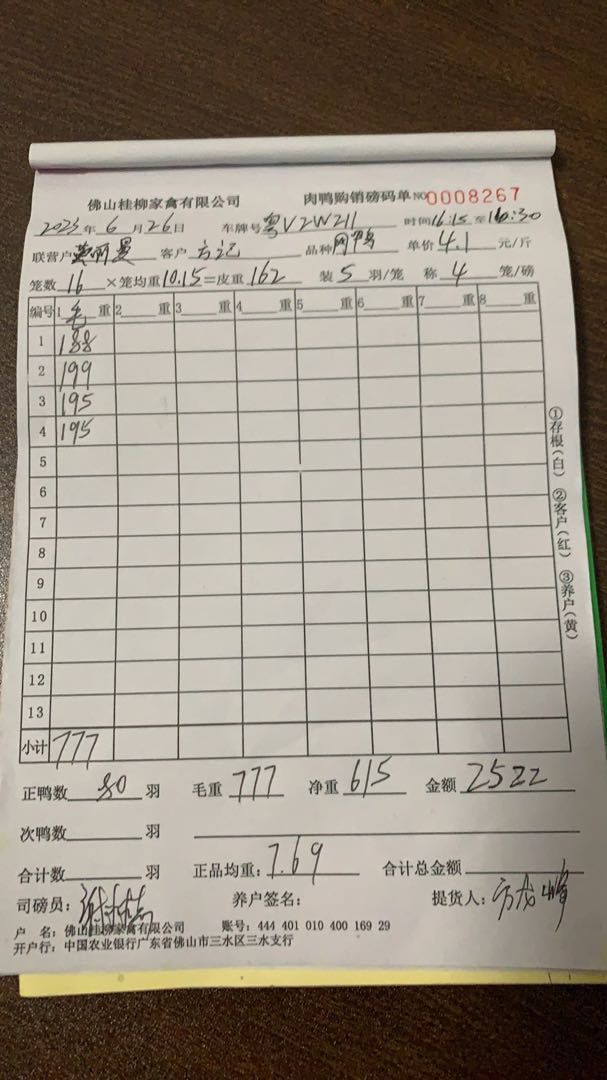 佛山桂柳家禽有限公司 肉鸭购销磅码单 NO 0008267
2023年 6 月 26 日 车牌号 粤V2W211 时间 16:15 至 16:30
联营户 丽 客户 方记 品种 网鸭 单价 4.1 元/斤
笼数 16 ×笼均重 10.15 =皮重 162 装 5 羽/笼 称 4 笼/磅
编号 1 毛 重 2 重 3 重 4 重 5 重 6 重 7 重 8 重
1 188
2 199
3 195
4 195
5
6
7
8
9
10
11
12
13
小计 777
①存根(白) ②客户(红) ③养户(黄)
正鸭数 80 羽 毛重 777 净重 615 金额 2522
次鸭数 羽
合计数 羽 正品均重: 7.69 合计总金额
司磅员: 养户签名: 提货人: 方
户 名: 佛山桂柳家禽有限公司 账号: 444 401 010 400 169 29
开户行: 中国农业银行广东省佛山市三水区三水支行